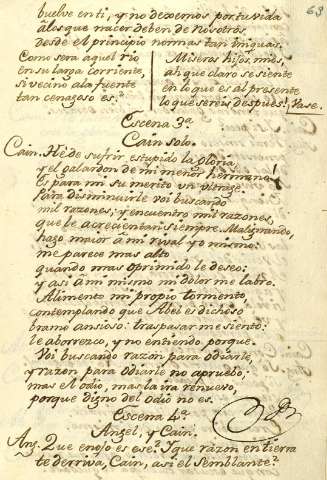 63
buelve en ti, y no dexemos por tu vida
á los que nacer deben de nosotros
desde el principio normas tan iniquas.
Como sera aquel rio
en su larga corriente,
si vecino á la fuente
tan cenagoso es.
Miseros hijos mios,
ah que claro se siente
en lo que es al presente
lo que seréis después! Vase.
Escena 3ª
Cain solo.
Cain. Hé de sufrir, estupido la gloria,
y el galardon de mi menor hermano!
Es para mi su merito un ultraje.
Para disminuirle voi buscando
mil razones; y encuentro mil razones,
que le acrecientan siempre. Malignando,
hago maior á mi rival yo mismo:
me parece mas alto
quando mas oprimido le deseo:
y asi á mi mismo mi dolor me labro.
Alimento mi propio tormento,
contemplando que Abel es dichoso
bramo ansioso: traspasar me siento:
le aborrezco, y no entiendo porque.
Voi buscando razon para odiarle,
y razon para odiarle no apruebo;
mas el odio, mas la ira renuevo,
porque digno del odio no es.
Escena 4ª
Angel, y Cain.
Ang. Que enojo es ese? I que razon en tierra
te derriva, Cain, asi el semblante?